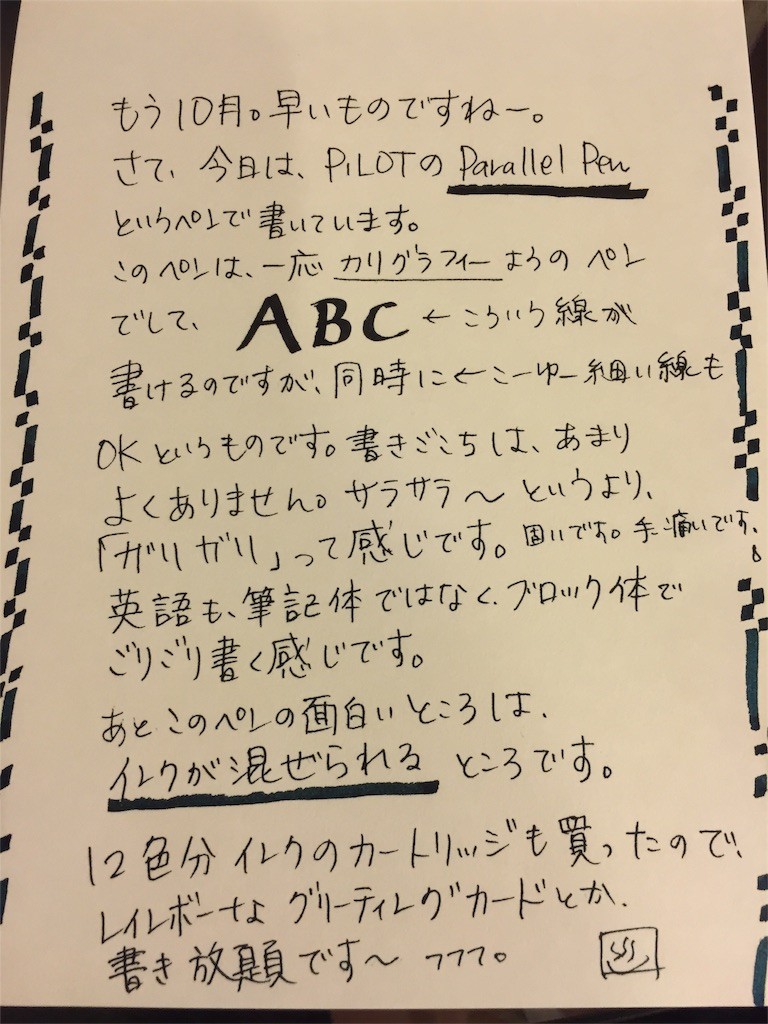 もう10月。早いものですねー。
さて、今日は、PILOTの Parallel Pen
というペンで書いています。
このペンは、一応 カリグラフィー ようの ペン
でして、 ABC ←こういう線が
書けるのですが、同時に←こーゆー細い線も
OKというものです。書きごこちは、あまり
よくありません。サラサラ〜というより、
「ガリガリ」って感じです。固いです。手痛いです。
英語も、筆記体ではなく、ブロック体で
ごりごり書く感じです。
あとこのペンの面白いところは、
インクが混ぜられる ところです。
12色分インクのカートリッジも買ったので、
レインボーなグリーティングカードとか、
書き放題です〜 フフフ。